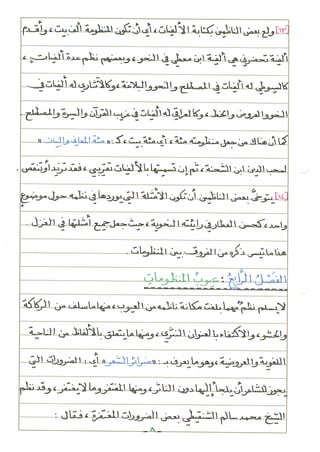 [١٣] ولع بعض الناظمين بكتابة الألفيات، أي أن تكون المنظومة ألف بيت، وأقدم
ألفية تحضرني هي ألفية ابن معطي في النحو، وبعضهم نظم عدة ألفيات،
كالسيوطي له ألفيات في المصطلح والنحو والبلاغة، وكالآثاري له ألفيات في
النحو والعروض والخط، وكالعراقي له ألفيات في غريب القرآن والسيرة والمصطلح.
كما أن هناك من جعل منظومته مئة، أي مئة بيت، كـ: «مئة المعاني والبيان»
لمحب الدين ابن الشحنة، ثم إن تسميتها بالألفيات تقريبي، فقد تزيد أو تنقص.
[١٤] يتوخى بعض الناظمين أن تكون الأمثلة التي يوردها في نظمه حول موضوع
واحد، كحسن العطار في رائيته النحوية، حيث جعل جميع أمثلتها في الغزل.
هذا ما تيسر ذكره من الفروق بين المنظومات.
الفصل الرابع: عيوب المنظومات
لا يسلم نظم مهما بلغت مكانة ناظمه من العيوب، منها ما سلف من الركاكة
والحشو، والاكتفاء بالعنوان النثري، ومنها ما يتعلق بالألفاظ من الناحية
اللغوية والعروضية، وهو ما يعرف بـ: «ضرائر الشعر» أي: الضرورات التي
يجوز للشاعر أن يلجأ إليها دون الناثر، ومنها المغتفر وما لا يغتفر، وقد نظم
الشيخ محمد سالم الشنقيطي بعض الضرورات المغتفرة، فقال:
-٨-